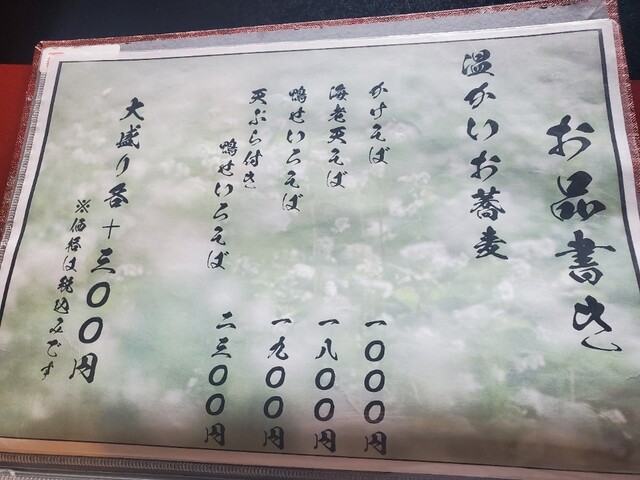 お品書き
温かいお蕎麦
かけそば 一〇〇〇円
海老天そば 一八〇〇円
鴨せいろそば 一九〇〇円
天ぷら付き
鴨せいろそば 二三〇〇円
大盛り各+三〇〇円
※価格は税込みです